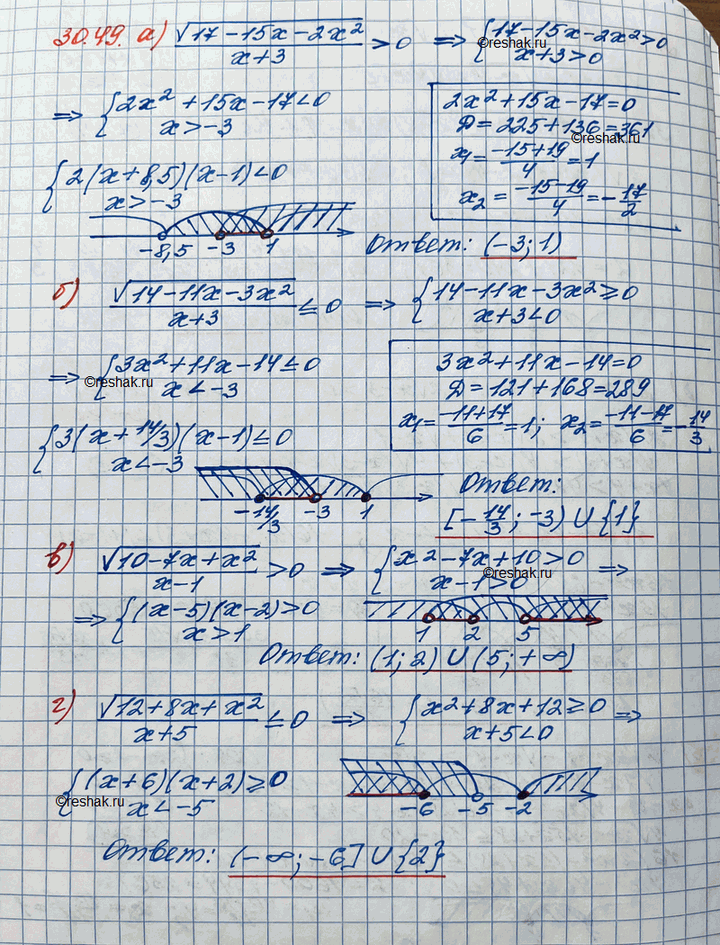 30.49. а) √(17-15x-2x²)/(x+3) > 0 => {17-15x-2x²>0
x+3>0
©reshak.ru
=> {2x²+15x-17<0
x>-3
2x²+15x-17=0
D=225+136=361
©reshak.ru
x₁=(-15+19)/4=1
x₂=(-15-19)/4=-17/2
{2(x+8,5)(x-1)<0
x>-3
-8,5 -3 1
Ответ: (-3; 1)
б) √(14-11x-3x²)/(x+3) ≤ 0 => {14-11x-3x²≥0
x+3<0
=> {3x²+11x-14≤0
x<-3
©reshak.ru
3x²+11x-14=0
D=121+168=289
x₁=(-11+17)/6=1; x₂=(-11-17)/6=-14/3
{3(x+14/3)(x-1)≤0
x<-3
-14/3 -3 1
Ответ:
[-14/3; -3) ∪ {1}
в) √(10-7x+x²)/(x-1) > 0 => {x²-7x+10>0
x-1>0 =>
©reshak.ru
=> {(x-5)(x-2)>0
x>1
1 2 5
Ответ: (1; 2) ∪ (5; +∞)
г) √(12+8x+x²)/(x+5) ≤ 0 => {x²+8x+12≥0
x+5<0 =>
{(x+6)(x+2)≥0
x<-5
©reshak.ru
-6 -5 -2
Ответ: (-∞; -6] ∪ {2}